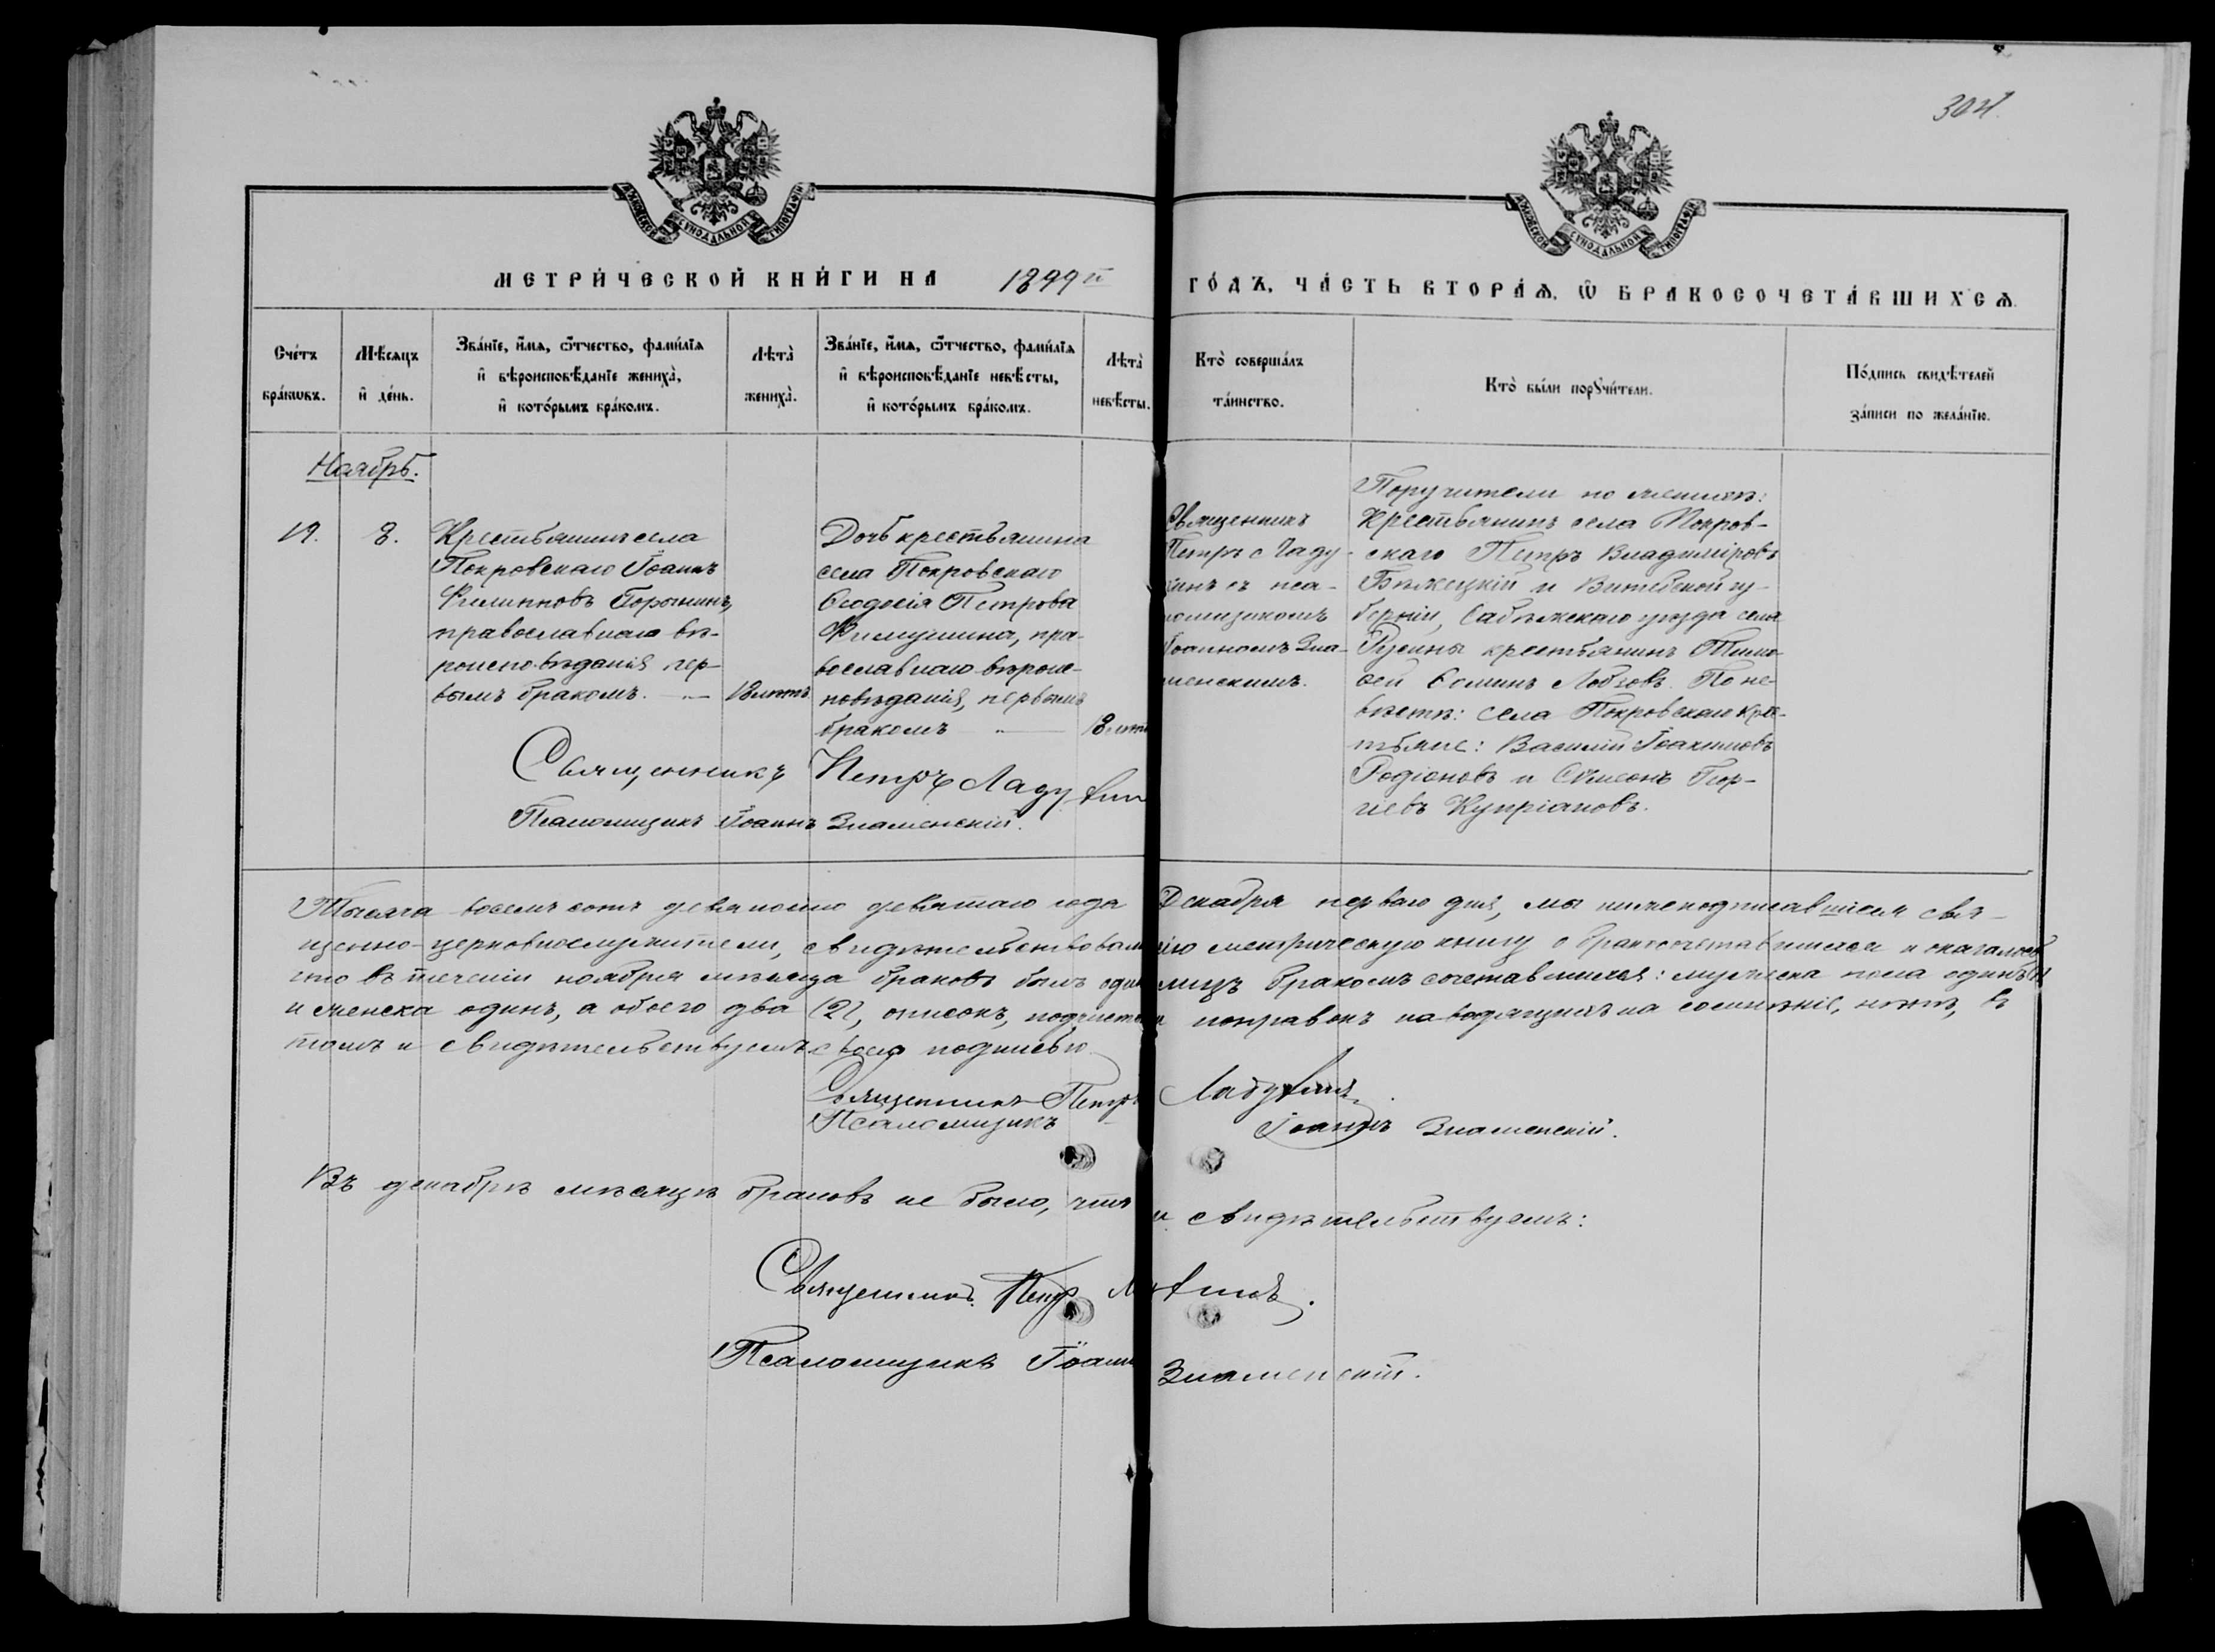 304.
МЕТРИ́ЧЕСКОЙ КНИ́ГИ НА 1899й ГО́ДЪ, ЧА́СТЬ ВТОРА́Ѧ, Ѡ҆ БРАКОСОЧЕТА́ВШИХСѦ.
Сче́тъ бра́кѡвъ.
Мѣ́сѧцъ и҆ де́нь.
Зва́нїе, и҆́мѧ, ѻ҆́тчество, фами́лїѧ
и҆ вѣроисповѣ́данїе жениха̀,
и҆ кото́рымъ бра́комъ.
Лѣ́та̀ жениха̀.
Зва́нїе, и҆́мѧ, ѻ҆́тчество, фами́лїѧ
и҆ вѣроисповѣ́данїе невѣ́сты,
и҆ кото́рымъ бра́комъ.
Лѣ́та̀ невѣ́сты.
Кто̀ соверша́лъ
та́инство.
Кто̀ бы́ли порꙋчи́тели.
По́дпись свидѣ́телей
за́писи по жела́нїю.
Ноябрь.
19.
8.
Крестьянинъ села
Покровскаго Іоаннъ
Филипповъ
православнаго вѣ-
роисповѣданія пер-
вымъ бракомъ.
18 лѣтъ
Дочь крестьянина
села Покровскаго
Ѳеодосія Петрова
пра-
вославнаго вѣроис-
повѣданія, первымъ
бракомъ
18 лѣтъ
Священникъ
Петръ Ладу-
хинъ съ пса-
ломщикомъ
Іоанномъ Зна-
менскимъ.
Поручители по женихѣ:
Крестьянинъ села Покров-
скаго Петръ Владиміровъ
Бѣжецкій и Витебской гу-
берніи, уѣзда села
крестьянинъ Тимо-
ѳей Ѳоминъ По не-
вѣстѣ: села Покровскаго кре-
стьяне: Василій Іоакимовъ
Родіоновъ и Сѵмеонъ Геор-
гіевъ Купріановъ.
Священникъ Петръ Ладухинъ
Псаломщикъ Іоаннъ Знаменскій.
Тысяча восемь сотъ девяносто девятаго года Декабря перваго дня, мы нижеподписавшіеся свя-
щенно-церковнослужители, свидѣтельствовали сію метрическую книгу о бракосочетавшихся и оказалось,
что въ теченіи ноября мѣсяца браковъ былъ одинъ лицъ бракомъ сочетавшихся: мужеска пола одинъ
и женска одинъ, а обоего два (2), описокъ, подчистокъ и поправокъ наводящихъ на сомнѣніе, нѣтъ, въ
томъ и свидѣтельствуемъ своею подписью
Священникъ Петръ Ладухинъ.
Псаломщикъ Іоаннъ Знаменскій.
Въ декабрѣ мѣсяцѣ браковъ не было, что и свидѣтельствуемъ:
Священникъ Петръ Ладухинъ.
Псаломщикъ Іоаннъ Знаменскій.